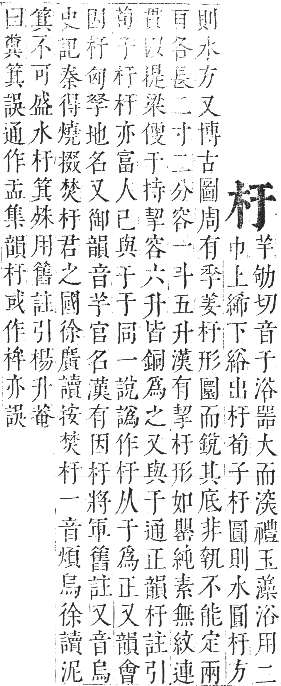 杅
羊劬切音于浴器大而淺禮玉藻浴用二
巾上絺下綌出杅荀子杅圓則水圓杅方
則水方又博古圖周有季姜杅形圜而銳其底非執不能定兩
耳各長二寸二分容一斗五升漢有挈杅形如罌純素無紋連
貫以提梁便于持挈容六升皆銅為之又與于通正韻杅註引
荀子杅杅亦富人已與于于同一說譌作杆从于為正又韻會
因杅匈孥地名又御韻音芋官名漢有因杅將軍舊註又音烏
史記秦得燒掇焚杅君之國徐廣讀按焚杅一音煩烏徐讀泥
箕不可盛水杅箕殊用舊註引楊升菴
曰糞箕誤通作盂集韻杅或作桙亦誤